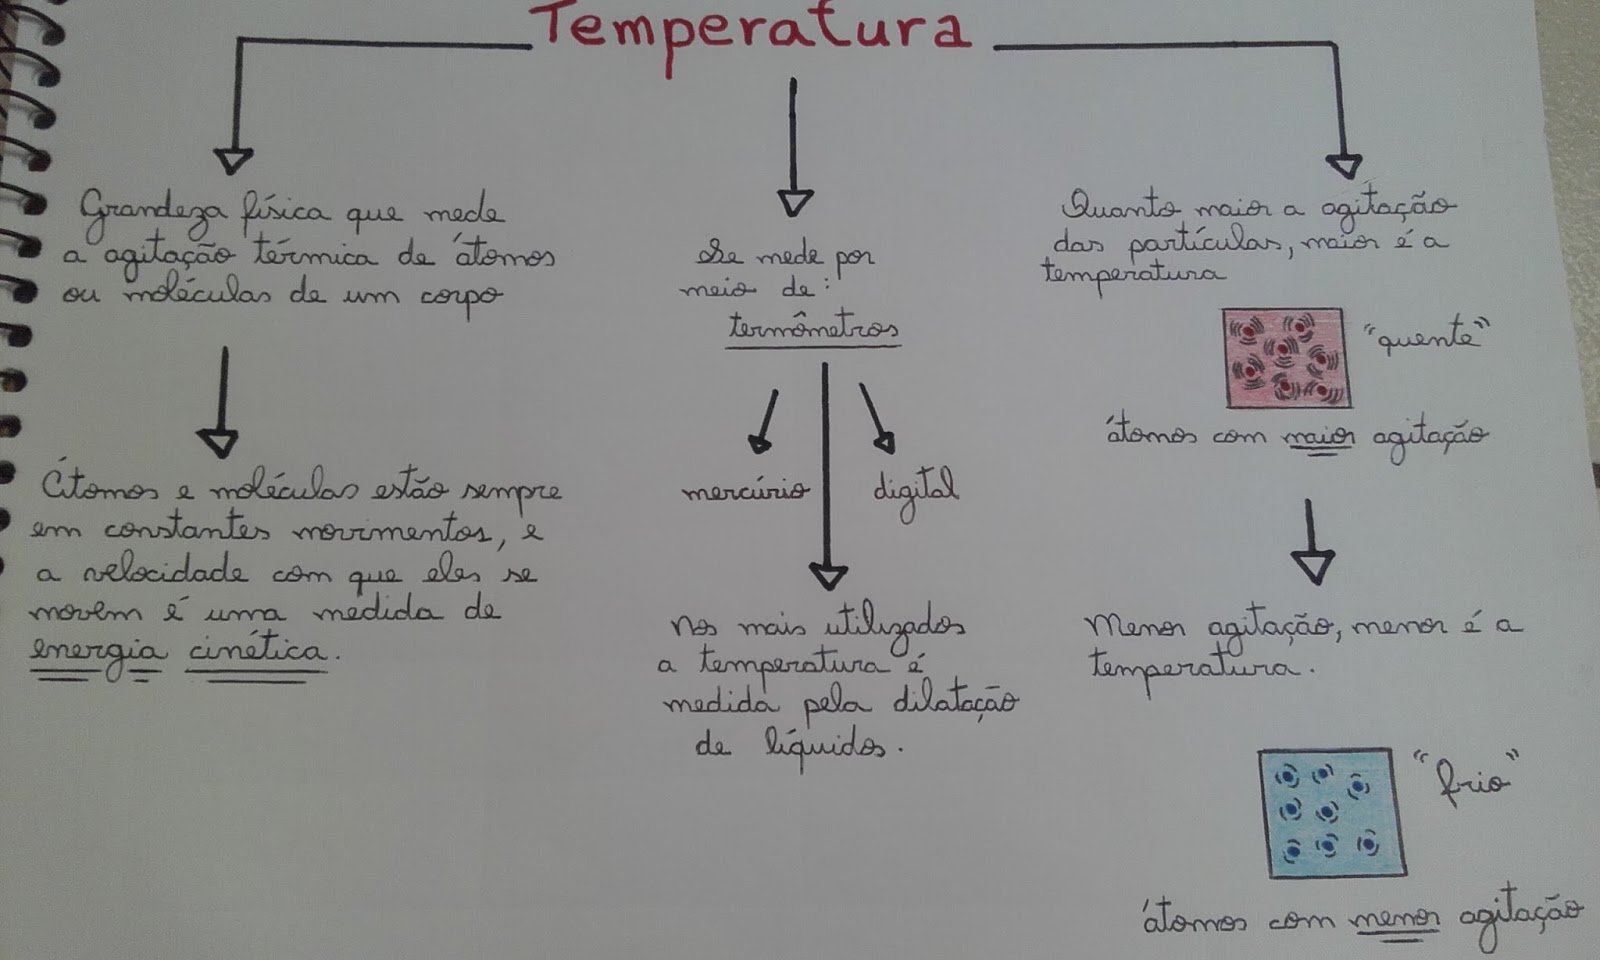 Temperatura
Grandeza física que mede
a agitação térmica de átomos
ou moléculas de um corpo
Átomos e moléculas estão sempre
em constantes movimentos, e
a velocidade com que eles se
movem é uma medida de
energia cinética.
Se mede por
meio de:
termômetros
mercúrio
digital
Nos mais utilizados
a temperatura é
medida pela dilatação
de líquidos.
Quanto maior a agitação
das partículas, maior é a
temperatura
"quente"
átomos com maior agitação
Menor agitação, menor é a
temperatura.
"frio"
átomos com menor agitação